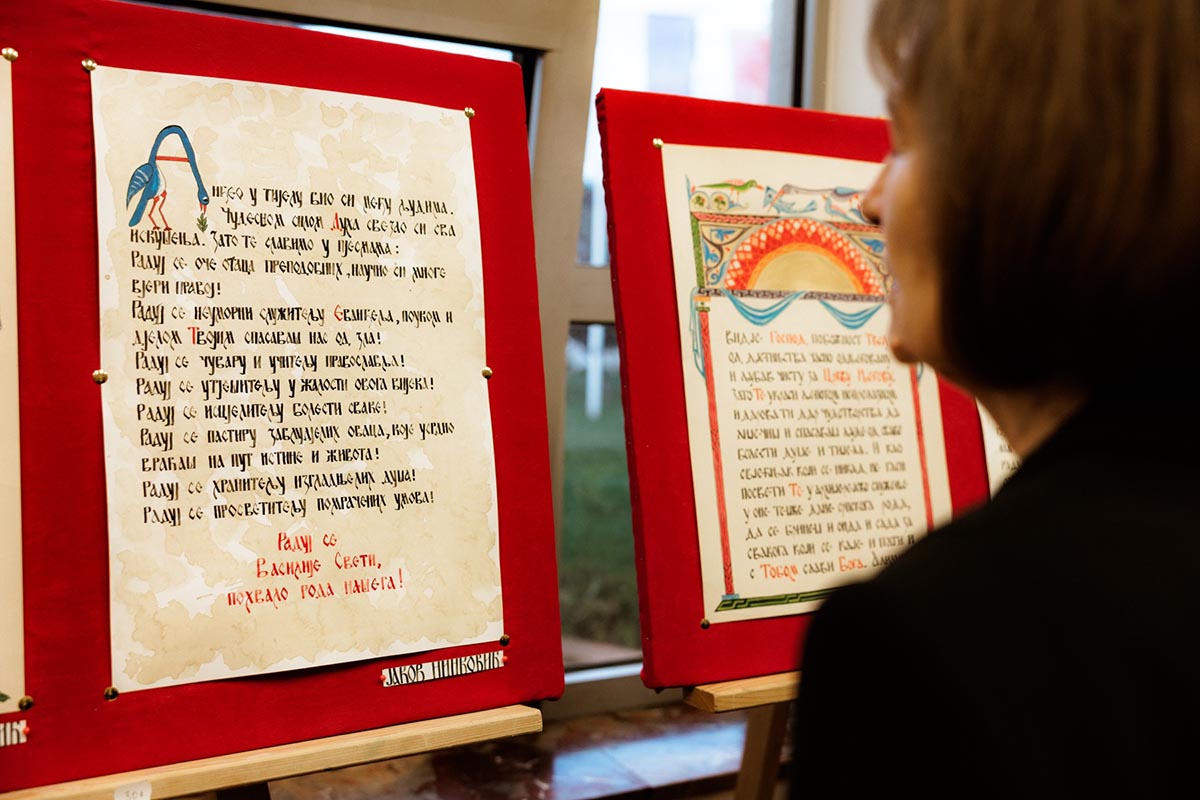 Анђео у тијелу био си међу људима.
Чудесном силом Духа свезао си сва
искушења. Зато те славимо у пјесмама:
Радуј се оче отаца преподобних, научио си многе
вјери правој!
Радуј се неуморни служитељу Еванђеља, поуком и
дјелом Твојим спасаваш нас од зла!
Радуј се чувару и учитељу православља!
Радуј се утјешитељу у жалости овога вијека!
Радуј се исцјелитељу болести сваке!
Радуј се пастиру заблудјелих оваца, које усрдно
враћаш на пут истине и живота!
Радуј се хранитељу изгладњелих душа!
Радуј се просветитељу помрачених умова!
Радуј се
Василије Свети,
похвало рода нашега!
ЈАКОВ НИНКОВИЋ
ИЋ
Видје Господ, побожност
од дјетињства јасно
и љубав чисту за Цркву Његову.
Зато Те украси
и дарова ти дар чудотворства да
и спасаваш људе од сваке
болести душе и тијела. И као
који се никад не гаси
посвети Те у служење
у оне тешке дане српскога рода,
да се бринеш и онда и сада за
свакога који се каје и пати и
с Тобом слави Бога.